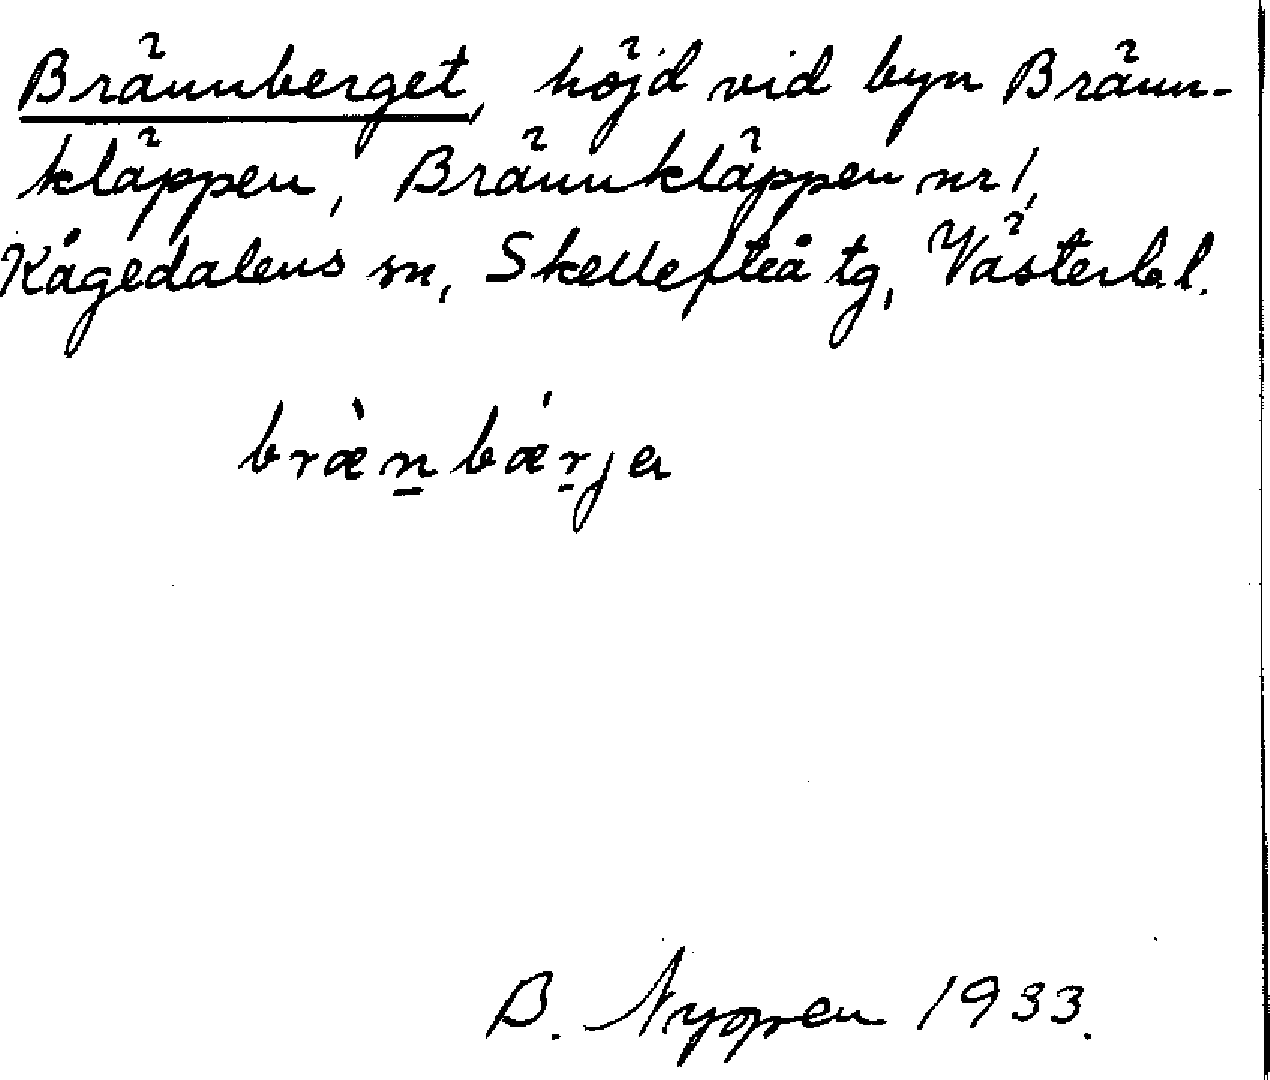 Brännberget, höjd vid byn Bränn-
kläppen, Brännkläppen nr 1,
Kågedalens sn, Skellefteå tg, Västerb. l.
bræ̀n̲bǽr̲ja
B. 1933.